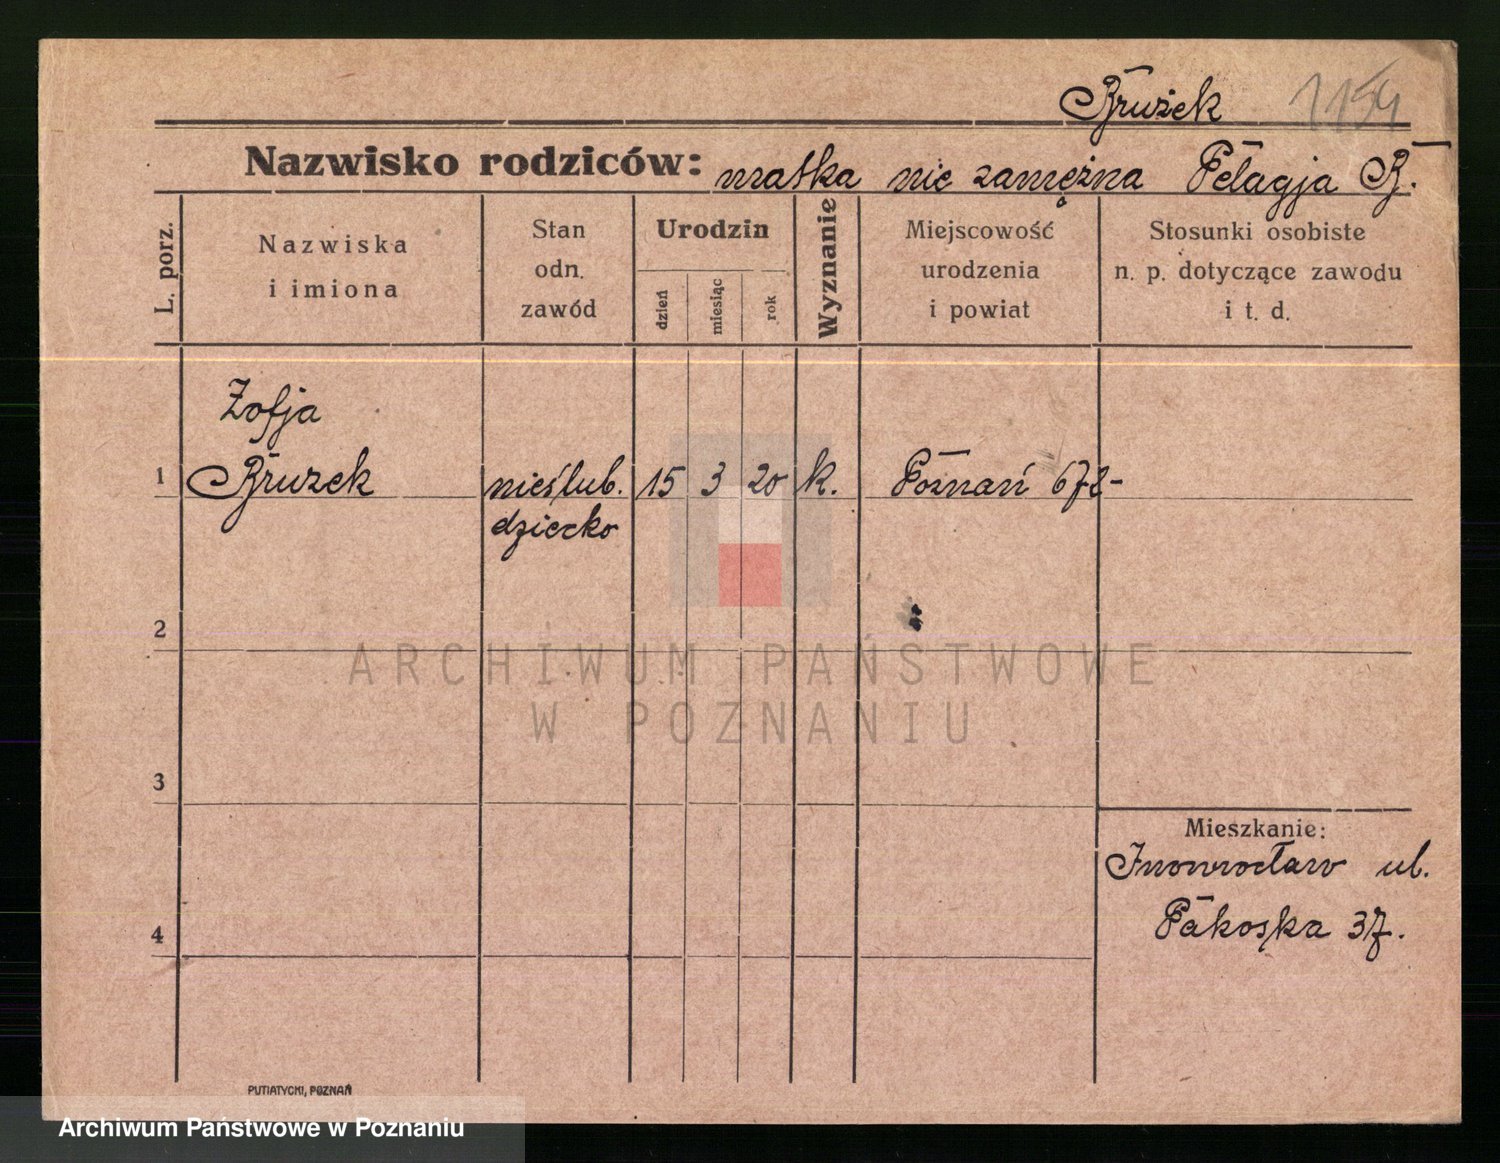 Brużek 1154
Nazwisko rodziców: matka nie zamężna Pelagja B.
L. porz.
Nazwiska
i imiona
Stan
odn.
zawód
Urodzin
dzień
miesiąc
rok
Wyznanie
Miejscowość
urodzenia
i powiat
Stosunki osobiste
n. p. dotyczące zawodu
i t. d.
Zofja
1 Bruzek nieślub. 15 3 20 k. Poznań 672-
dziecko
2
ARCHIWUM PAŃSTWOWE
W POZNANIU
3
Mieszkanie:
Inowrocław ul.
Pakoska 37.
4
PUTIATYCKI, POZNAŃ
Archiwum Państwowe w Poznaniu